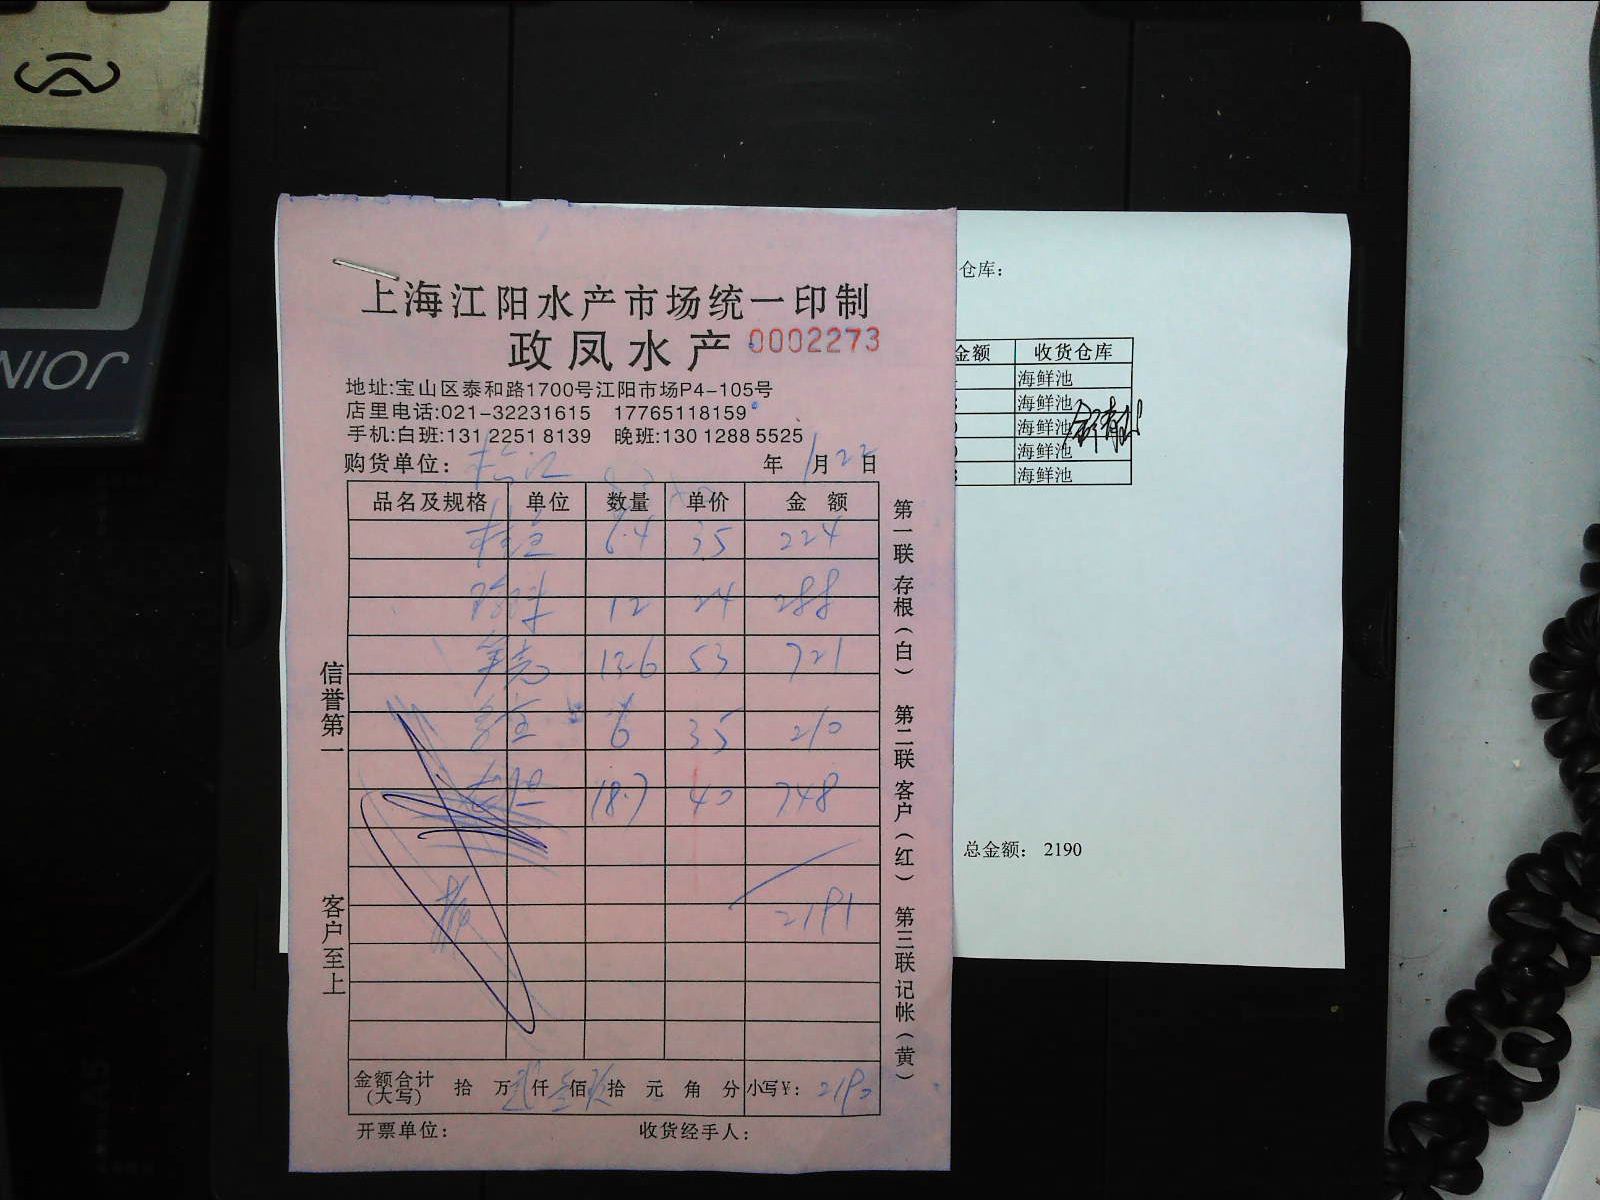 上海江阳水产市场统一印制
政凤水产 0002273
地址:宝山区泰和路1700号江阳市场P4-105号
店里电话:021-32231615 17765118159
手机:白班:131 2251 8139 晚班:130 1288 5525
购货单位: 年 1月22日
品名及规格 单位 数量 单价 金额
6.4 35 224
12 24 288
13.6 53 721
6 35 210
18.7 40 748
2191
金额合计(大写) 拾 万 仟 佰 拾 元 角 分 小写¥: 2190
开票单位: 收货经手人:
信誉第一
客户至上
第一联 存根(白) 第二联 客户(红) 第三联 记帐(黄)
仓库:
金额 收货仓库
海鲜池
海鲜池
海鲜池
海鲜池
海鲜池
总金额: 2190
JOIN